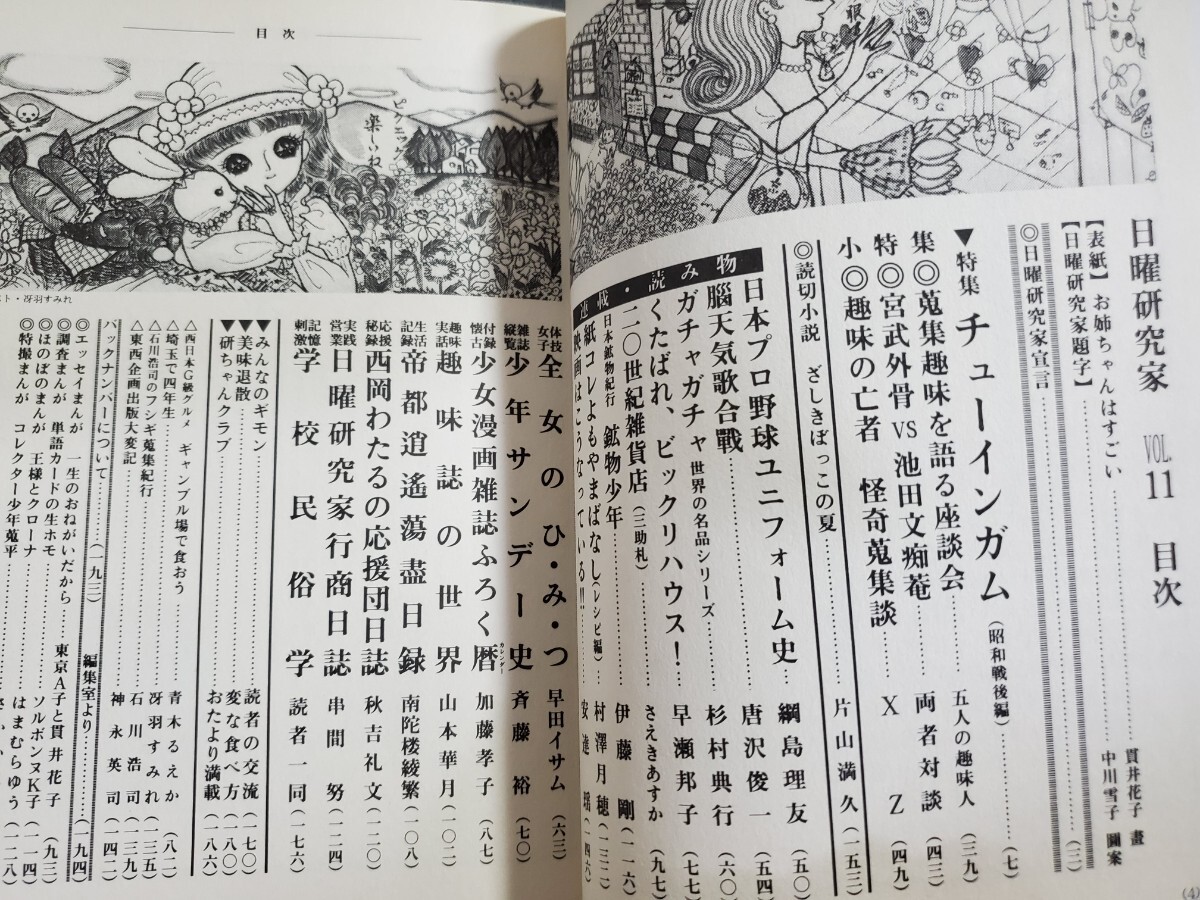 日曜研究家 VOL.11 目次
【表紙】お姉ちゃんはすごい 貫井花子 畫
【日曜研究家題字】 中川雪子 圖案
◎日曜研究家宣言 (二)
▼特集 チューインガム (昭和戦後編) (七)
集◎蒐集趣味を語る座談会 五人の趣味人 (三九)
特◎宮武外骨VS池田文痴菴 両者対談 (四三)
小◎趣味の亡者 怪奇蒐集談 X Z (四九)
◎読切小説 ざしきぼっこの夏 片山満久 (一五三)
連載・読み物
日本プロ野球ユニフォーム史 綱島理友 (五〇)
脳天気歌合戰 唐沢俊一 (五四)
ガチャガチャ 世界の名品シリーズ 杉村典行 (六〇)
くたばれ、ビックリハウス! 早瀬邦子 (七七)
二〇世紀雑貨店 (三助札) さえきあすか (九七)
日本鉱物紀行 鉱物少年 伊藤剛 (一一六)
紙コレよもやまばなし (レシピ編) 村澤月穂 (一三二)
映画はこうなっている!! 安達瑶 (一四六)
(4)
目次
ピクニック
楽しいね
スト・冴羽すみれ
体技女子 全女のひ・み・つ 早田イサム (六三)
雑誌縦覧 少年サンデー史 斉藤裕 (七〇)
付録懐古 少女漫画雑誌ふろく暦 カレンダー 加藤孝子 (八七)
趣味実話 趣味誌の世界 山本華月 (一〇二)
生活記録 帝都逍遙蕩盡日録 南陀楼綾繁 (一〇八)
応援秘録 西岡わたるの応援団日誌 秋吉礼文 (一二〇)
実践営業 日曜研究家行商日誌 串間努 (一二四)
記憶刺激 学校民俗学 読者一同 (一七六)
▼みんなのギモン 読者の交流 (一七〇)
▼美味退散 変な食べ方 (一八〇)
▼研ちゃんクラブ おたより満載 (一八六)
△西日本G級グルメ ギャンブル場で食おう 青木るえか (八二)
△埼玉で四年生 冴羽すみれ (一三五)
△石川浩司のフシギ蒐集紀行 石川浩司 (一三九)
△東西企画出版大変記 神永英司 (一四二)
バックナンバーについて (一九三) 編集室より (一九四)
◎エッセイまんが 一生のおねがいだから 東京A子と貫井花子 (九三)
◎調査まんが 単語カードの生ホモ ソルボンヌK子 (一一四)
◎ほのぼのまんが 王様とクローナ はまむらゆう (一二八)
◎特撮まんが コレクター少年蒐平